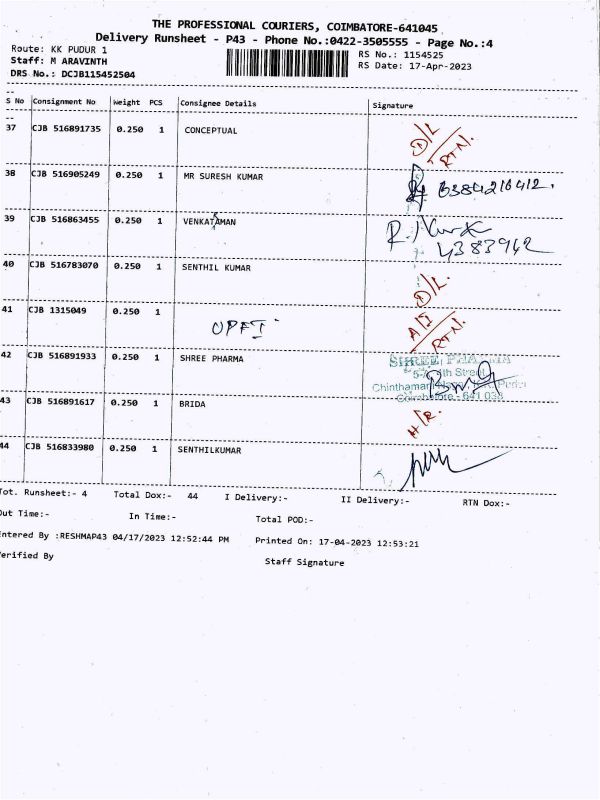 THE PROFESSIONAL COURIERS, COIMBATORE-641045
Delivery Runsheet - P43 - Phone No.:0422-3505555 - Page No.:4
Route: KK PUDUR 1
RS No.: 1154525
Staff: M ARAVINTH
RS Date: 17-Apr-2023
DRS No.: DCJB115452504
S No Consignment No Weight PCS Consignee Details Signature
37 CJB 516891735 0.250 1 CONCEPTUAL D/L
RTN.
38 CJB 516905249 0.250 1 MR SURESH KUMAR 6384216412.
39 CJB 516863455 0.250 1 VENKATAMAN
4383942
40 CJB 516783070 0.250 1 SENTHIL KUMAR D/L.
41 CJB 1315049 0.250 1 A/I
RTN.
42 CJB 516891933 0.250 1 SHREE PHARMA SHREE PHARMA
4th Street
Coimbatore - 641 038
43 CJB 516891617 0.250 1 BRIDA H/R.
44 CJB 516833980 0.250 1 SENTHILKUMAR
Tot. Runsheet:- 4 Total Dox:- 44 I Delivery:- II Delivery:- RTN Dox:-
Out Time:- In Time:- Total POD:-
Entered By :RESHMAP43 04/17/2023 12:52:44 PM Printed On: 17-04-2023 12:53:21
Verified By Staff Signature